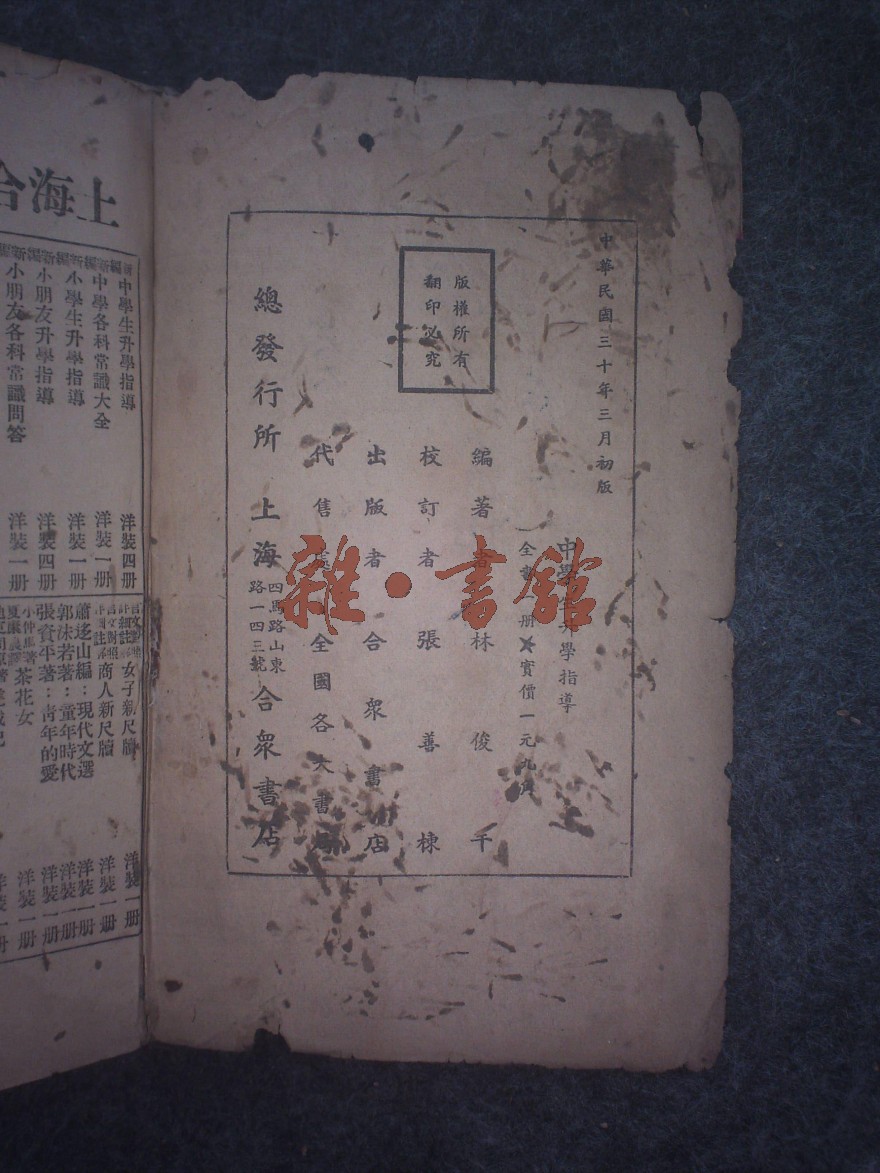 中華民國三十年三月初版
中學生升學指導
全書 册 實價一元九角
編著者 林俊千
校訂者 張善棟
出版者 合衆書店
代售處 全國各大書局
總發行所 上海 四馬路山東路一四三號 合衆書店
版權所有
翻印必究
雜·書館
上海合
新編中學生升學指導 洋裝四册
新編中學各科常識大全 洋裝一册
新編小學生升學指導 洋裝一册
新編小朋友升學指導 洋裝四册
小朋友各科常識問答 洋裝一册
女子新尺牘 洋裝一册
商人新尺牘 洋裝一册
蕭迻山編：現代文選 洋裝一册
郭沫若著：童年時代 洋裝一册
張資平著：青年的愛 洋裝一册
茶花女 洋裝一册